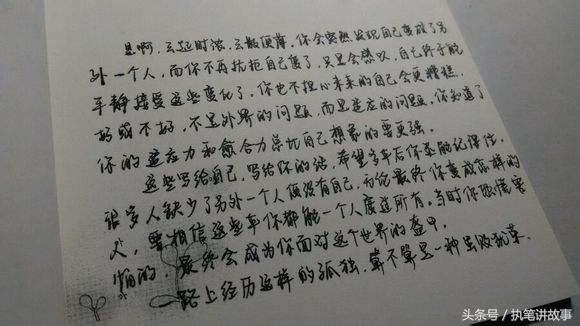 是啊，云起时浓，云散便薄，你会突然发现自己变成了另
外一个人，而你不再抗拒自己变了，只是会感叹，自己终于能
平静接受这些变化了，你也不担心未来的自己会更糟糕，
好或不好，不是外界的问题，而是适应的问题，你知道了
你的适应力和愈合力总比自己想象的要更强。
这些写给自己，写给你的话，希望多年后你还能记得住，
很多人缺少了另外一个人便没有自己，无论最终你变成怎样的
人，要相信这些年你都能一个人度过所有，当时你所慌害
怕的，最终会成为你面对这个世界的盔甲。
一路上经历这样的孤独，算不算是一种虽败犹荣。
头条号 / 执笔讲故事